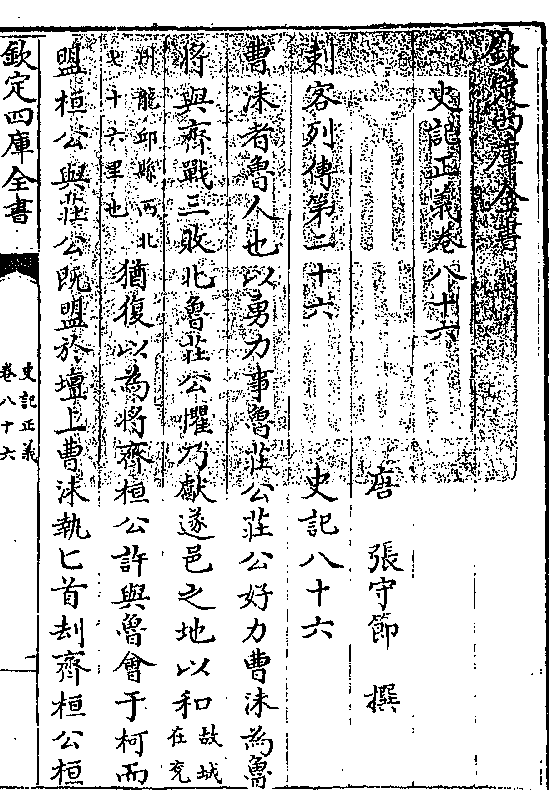 欽定四庫全書
史記正義卷八十六
唐 張守節 撰
刺客列傳第二十六 史記八十六
曹沫者魯人也以勇力事魯莊公莊公好力曹沫為魯
將與齊戰三敗北魯莊公懼乃獻遂邑之地以和故城在兖
州龍邱縣西北七十六里也猶復以為將齊桓公許與魯會于柯而
盟桓公與莊公既盟於壇上曹沫執匕首刦齊桓公桓
欽定四庫全書
史記正義
卷八十六